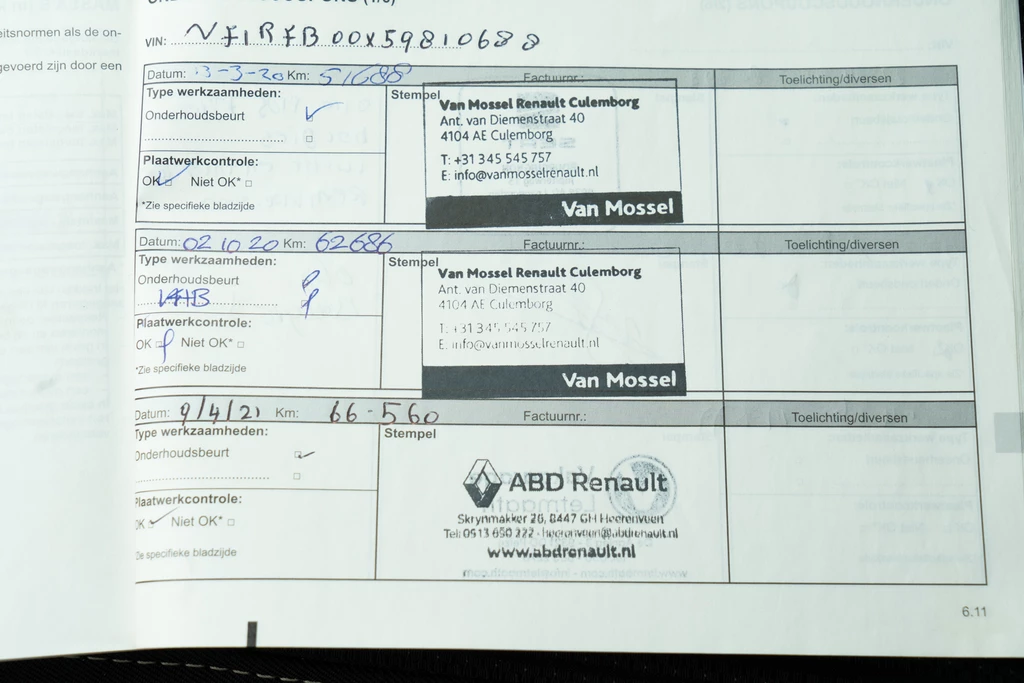 eitsnormen als de on-
gevoerd zijn door een
VIN: VF1RFB00X59810688
Datum: 13-3-20 Km: 51688 Factuurnr.: Toelichting/diversen
Type werkzaamheden:
Onderhoudsbeurt
Plaatwerkcontrole:
OK Niet OK*
*Zie specifieke bladzijde
Stempel
Van Mossel Renault Culemborg
Ant. van Diemenstraat 40
4104 AE Culemborg
T: +31 345 545 757
E: info@vanmosselrenault.nl
Van Mossel
Datum: 02 10 20 Km: 62686 Factuurnr.: Toelichting/diversen
Type werkzaamheden:
Onderhoudsbeurt
Plaatwerkcontrole:
OK Niet OK*
*Zie specifieke bladzijde
Stempel
Van Mossel Renault Culemborg
Ant. van Diemenstraat 40
4104 AE Culemborg
T: +31 345 545 757
E: info@vanmosselrenault.nl
Van Mossel
Datum: 9/4/21 Km: 66-560 Factuurnr.: Toelichting/diversen
Type werkzaamheden:
Onderhoudsbeurt
Plaatwerkcontrole:
OK Niet OK*
Zie specifieke bladzijde
Stempel
ABD Renault
Skrynmakker 26, 8447 GH Heerenveen
Tel: 0513 650 222 - heerenveen@abdrenault.nl
www.abdrenault.nl
6.11